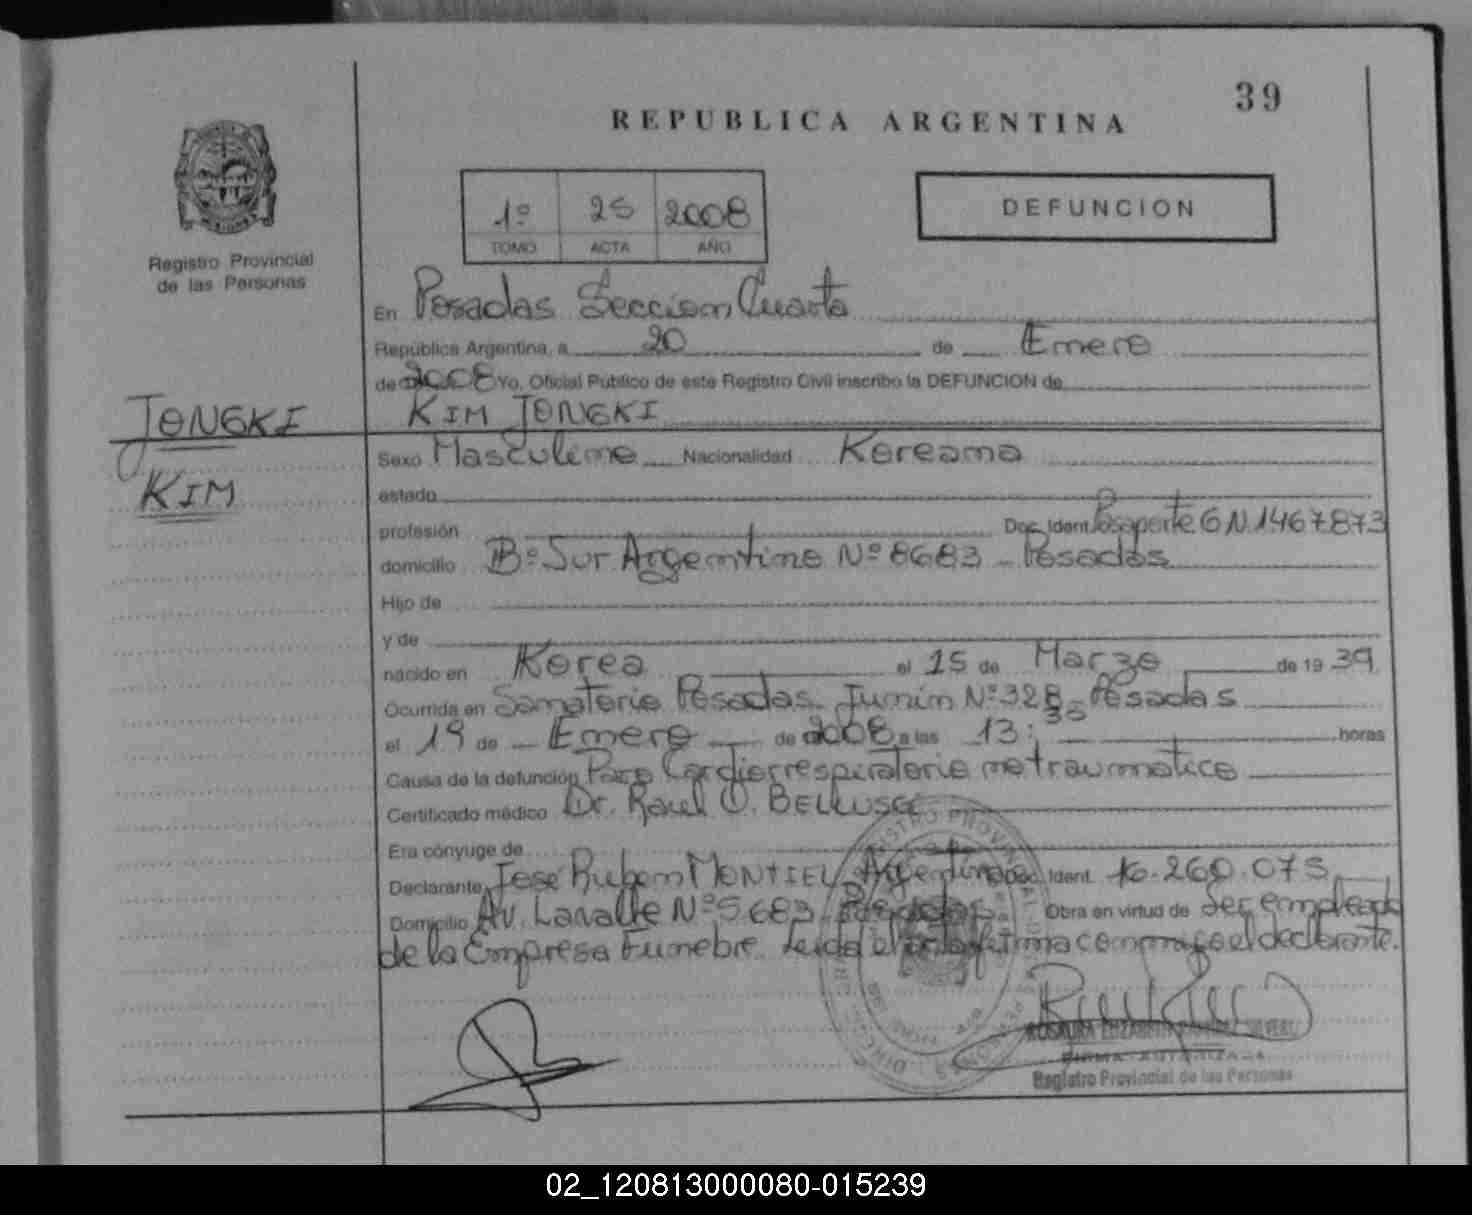 39
REPUBLICA ARGENTINA
1º 25 2008
TOMO ACTA AÑO
DEFUNCION
Registro Provincial
de las Personas
En Posadas Sección Cuarta
República Argentina, a 20 de Enero
de 2008 Yo, Oficial Público de este Registro Civil inscribo la DEFUNCION de
JONGKI
KIM
KIM JONGKI
Sexo Masculino Nacionalidad Koreana
estado
profesión Doc. Ident. Pasaporte GN.1467873
domicilio Bº Sur Argentino Nº 8683 - Posadas
Hijo de
y de
nacido en Korea el 15 de Marzo de 19 39
Ocurrida en Sanatorio Posadas Junin Nº 328 - Posadas
el 19 de Enero de 2008 a las 13:35 horas
Causa de la defunción Paro Cardiorrespiratorio no traumatico
Certificado médico Dr. Raul O.
Era cónyuge de
Declarante José Ruben MONTIEL Argentino Doc. Ident. 16.260.075
Domicilio Av. Lavalle Nº 5683 Posadas Obra en virtud de Ser empleado
de la Empresa Funebre. Leida el acta firma conmigo el declarante.
FIRMA AUTORIZADA
Registro Provincial de las Personas
02_120813000080-015239